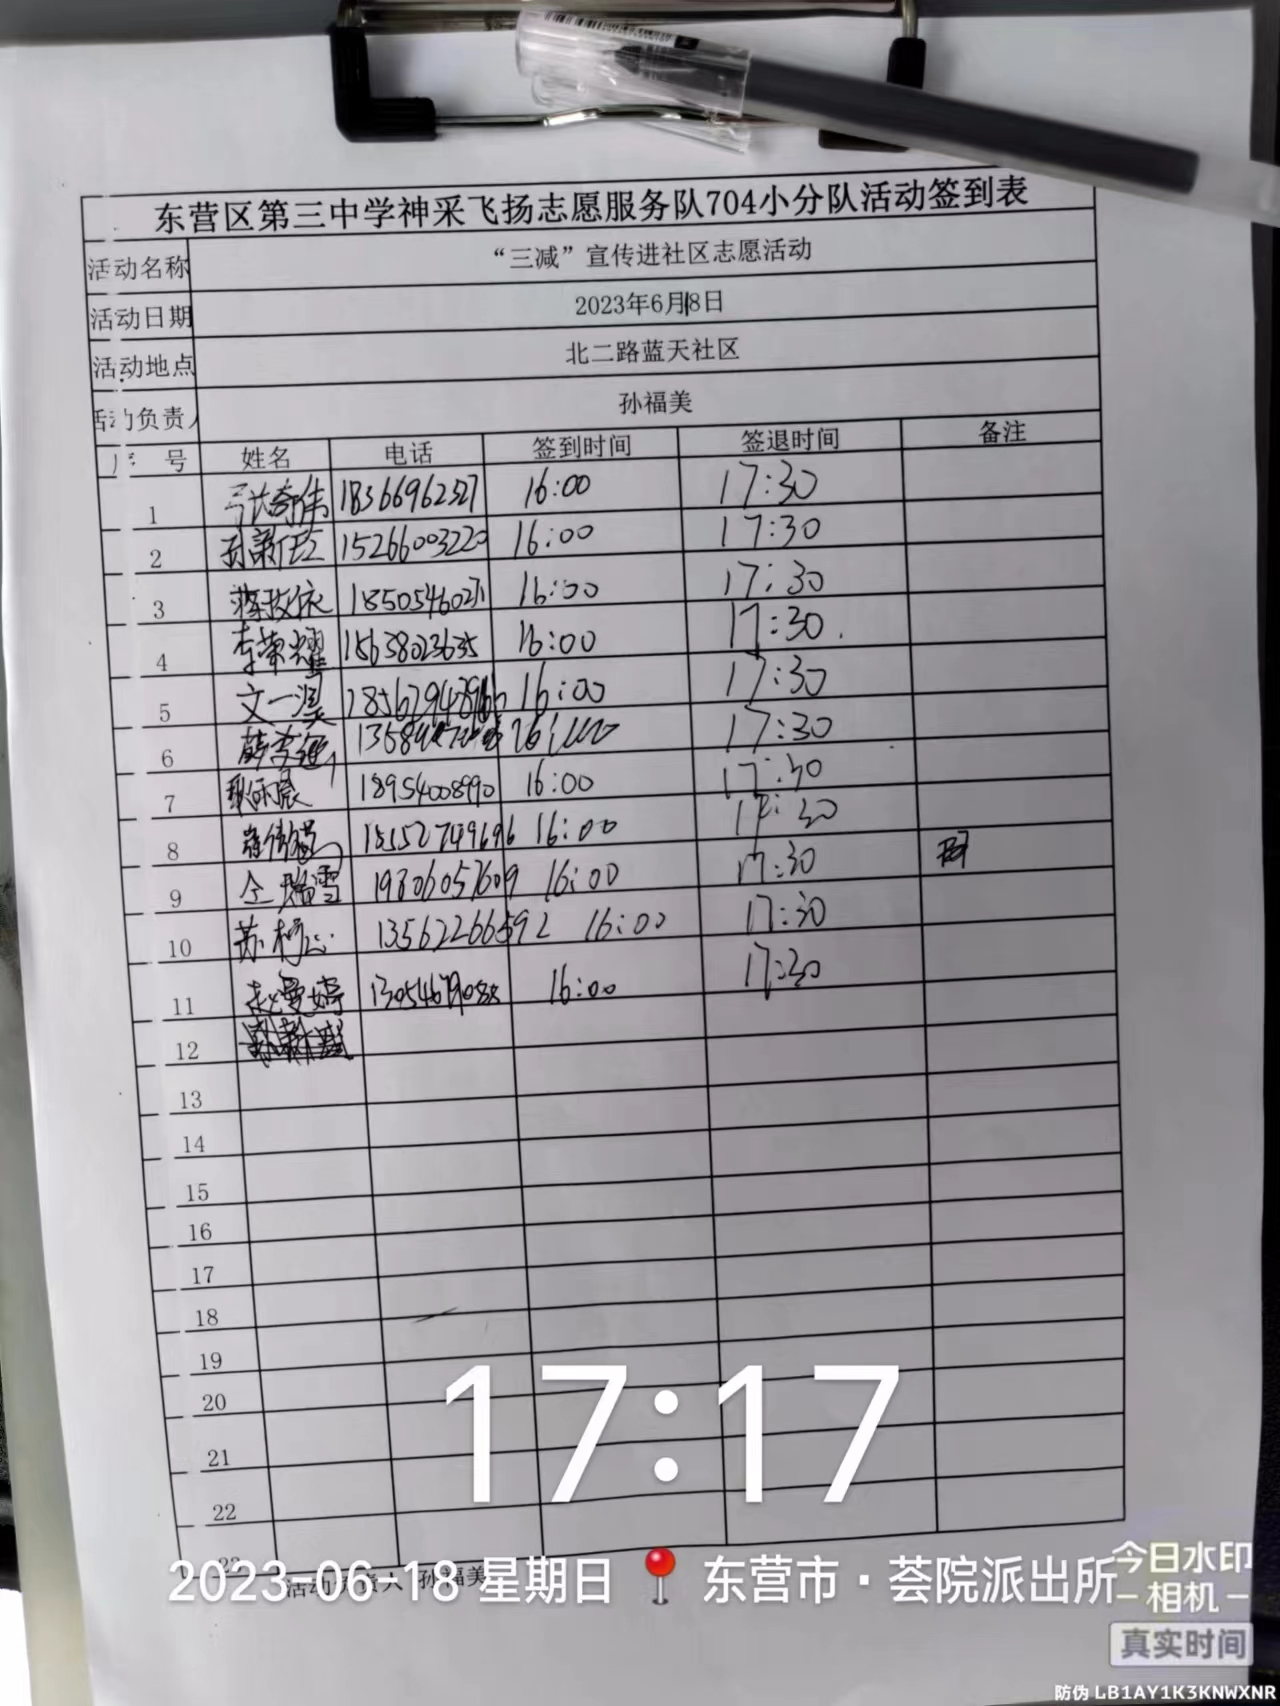 东营区第三中学神采飞扬志愿服务队704小分队活动签到表
活动名称 “三减”宣传进社区志愿活动
活动日期 2023年6月18日
活动地点 北二路蓝天社区
活动负责人 孙福美
序 号 姓名 电话 签到时间 签退时间 备注
1 18366962327 16:00 17:30
2 15266003220 16:00 17:30
3 16:00 17:30
4 李荣耀 15638023635 16:00 17:30
5 文一淏 16:00 17:30
6 17:30
7 18954008990 16:00 17:30
8 16:00 17:30
9 仝瑞雪 19806057609 16:00 17:30
10 13562266592 16:00 17:30
11 赵曼婷 16:00 17:30
12
13
14
15
16
17
18
19
20
21
22
23
活动负责人 孙福美
17:17
2023-06-18 星期日 东营市·荟院派出所
今日水印
相机
真实时间
防伪 LB1AY1K3KNWXNR